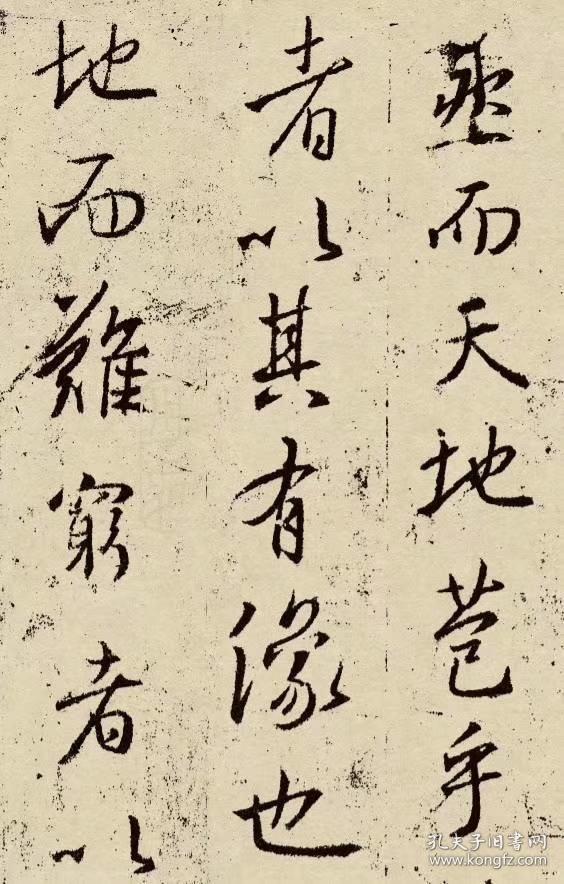 然而天地苞乎
者以其有像也
地而難窮者以
孔夫子旧书网
www.kongfz.com